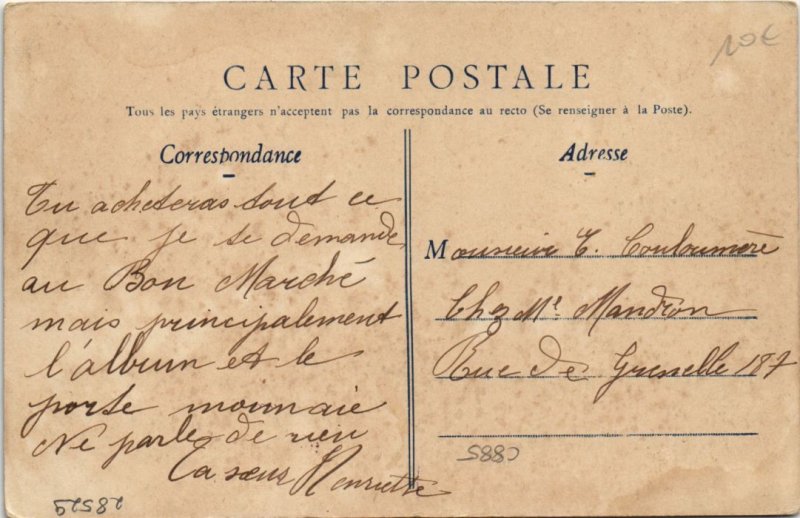 10€
CARTE POSTALE
Tous les pays étrangers n'acceptent pas la correspondance au recto (Se renseigner à la Poste).
Correspondance
Tu acheteras tout ce
que je te demande
au Bon Marché
mais principalement
l'album et le
porte monnaie
Ne parle de rien
Ta soeur Henriette
Adresse
Monsieur E. Couloumère
Chez Mr Mandron
Rue de Grenelle 187
C885
28529